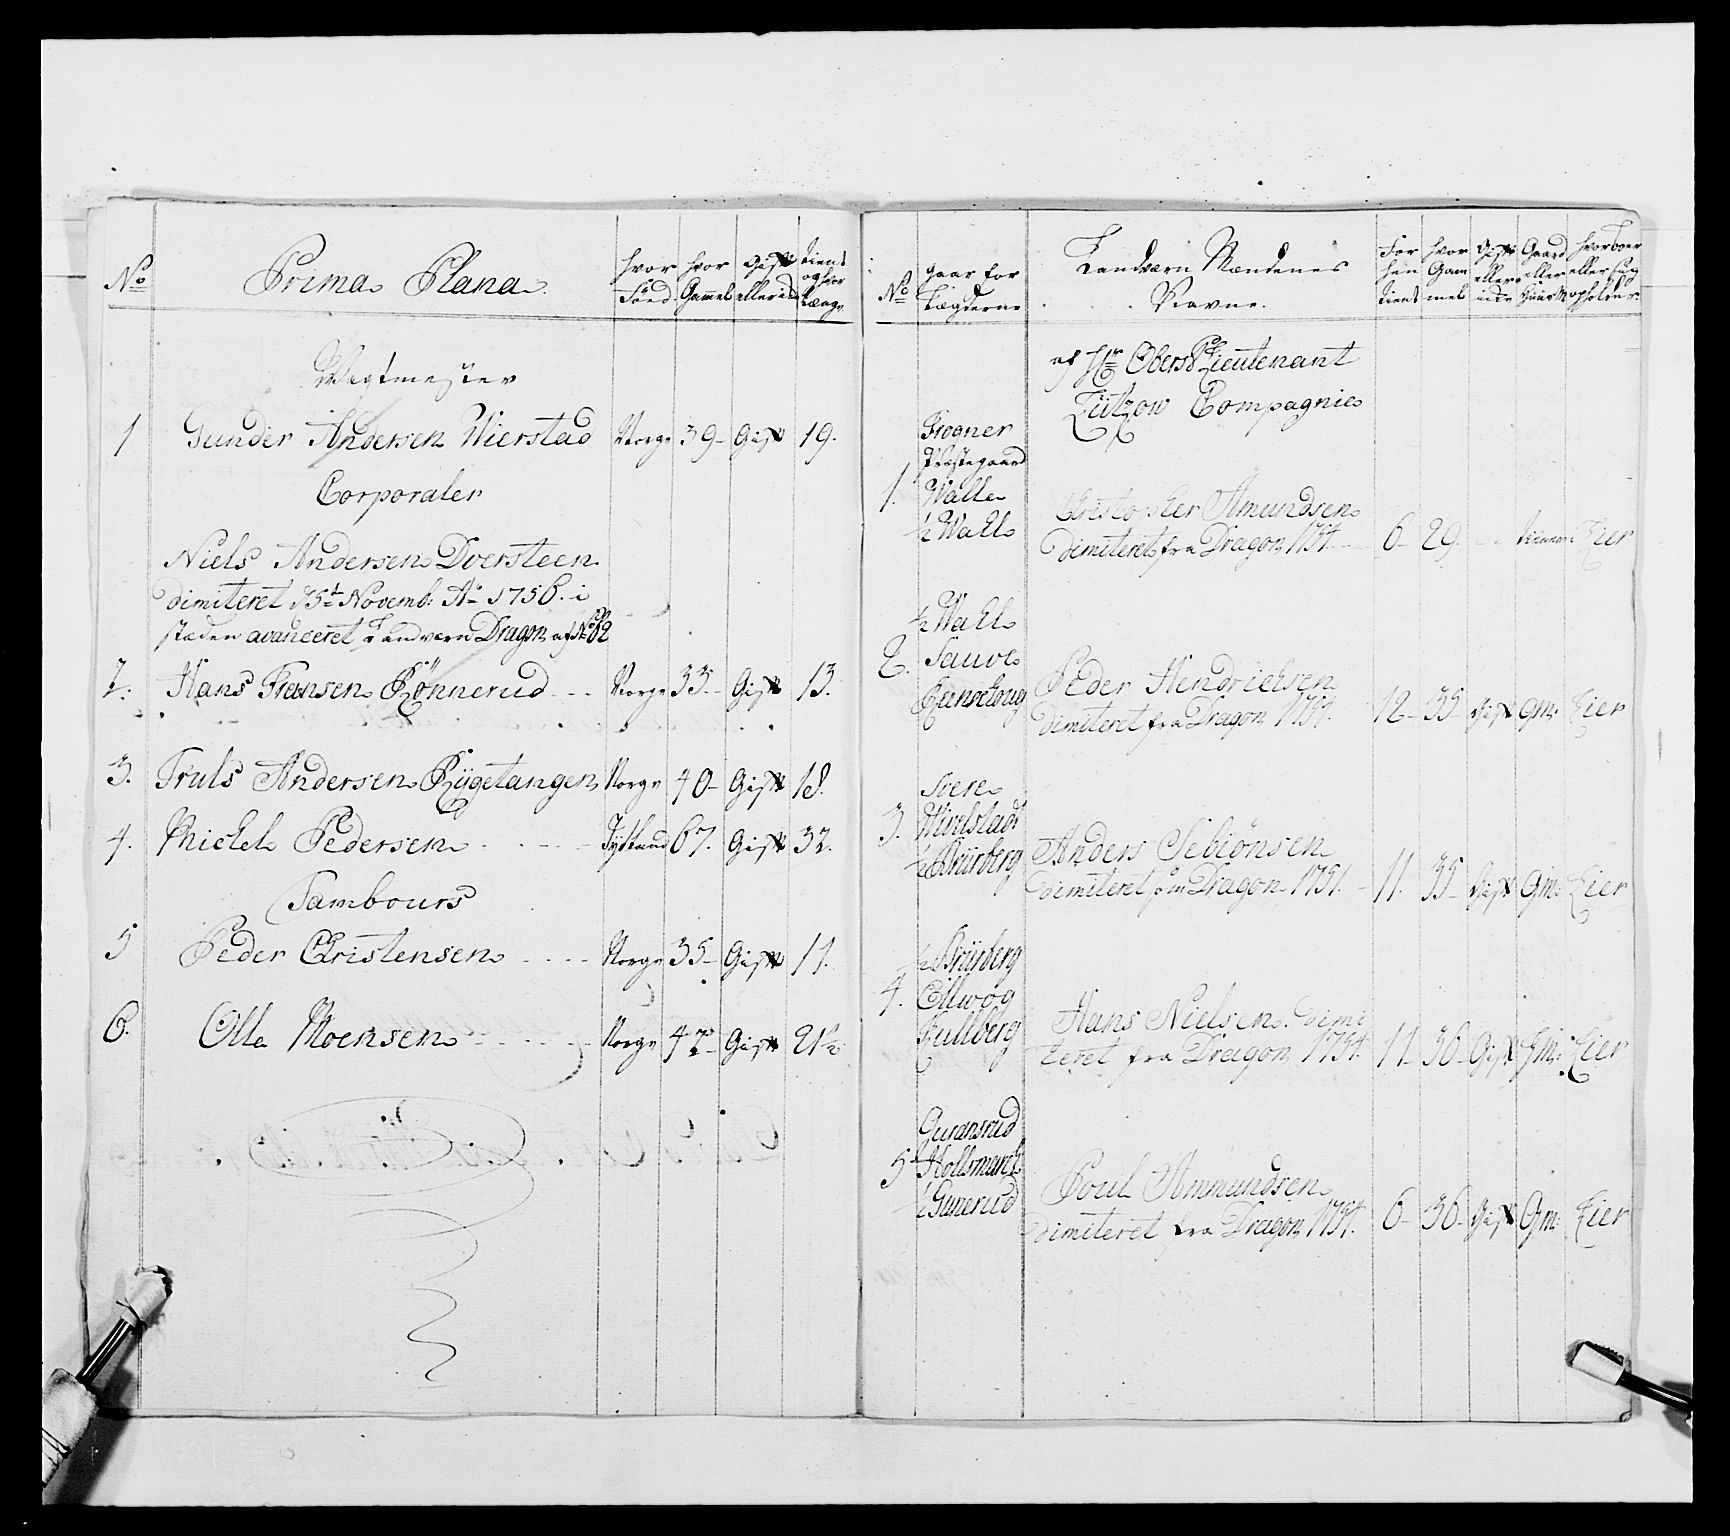 No
Prima Plana
hvor
Föed
hvor
Gammel
Gift
eller
tient
og hvor
længe
Wagtmester
1 Gunder Andersen Wierstad Norge 39 - Gift 19.
Corporaler
Niels Andersen Dversteen
dimiteret 15t Novemb: Ao 1756. i
stæden avanceret Landværn Dragon af No 62
2. Hans Fransen Rönnerud - - - Norge 33 - Gift 13.
3. Truls Andersen Rÿgetangen Norge 40 - Gift 18.
4. Michel Pedersen - - - - Tydskland 67. Gift 32.
Tambours
5 Peder Christensen - - - - Norge 35 - Gift 11.
6. Olle Moensen - - - - - Norge 47 - Gift 21½
No
Gaar for
Lægderne
Landværn Mændenes
Navne.
For
hen
tient
hvor
Gam
mel
Gift
eller
Gaard
eller
Huus M
hvor boer
eller sig
opholder.
af Hr Oberst Lieutenant
Lützow Compagnie
Frogner
Præstegaard
1. Walle
½ Wahl
Christopher Amundsen
dimiteret fra Dragon 1754 - 6 - 29 - - Lier
½ Wahl
2. Tauve
Renskoug
Peder Hendrichsen
dimiteret fra Dragon 1757. 12 - 35 Gift Gm: Lier
Svere
3. Wivelstad
½ Brürberg
Anders Sebiönsen
dimiteret som Dragon 1751. - 11. 35 - Gift Gm: Lier
½ Brürberg
4. Ellwog
Kullberg
Hans Nielsen dimi
teret fra Dragon 1754. 11 - 36 - Gift Gm: Lier
Guransrud
5 Hollsmarch
½ Gunerud
Poul Ammundsen
dimiteret fra Dragon 1754. 6 - 36 - Gift Gm: Lier